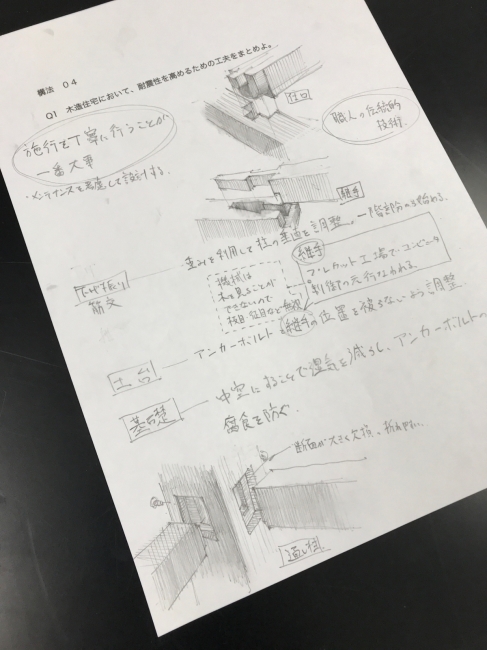 構法 04
Q1 木造住宅において、耐震性を高めるための工夫をまとめよ。
施行を丁寧に行うことが
一番大事
・メンテナンスを考慮して設計する。
仕口
職人の伝統的
技術.
継手
下げ振り
重みを利用して柱の垂直を調整
一階部分から始める。
筋交
機械は
木を見ることが
できないので
継手
プレカット工場でコンピュータ
制御で
行なわれる.
土台
アンカーボルト
継手の位置を被らないよう調整
基礎
中空にすることで湿気を減らし、アンカーボルトの
腐食を防ぐ.
断面が大きく欠損。折れやすい.
通し柱